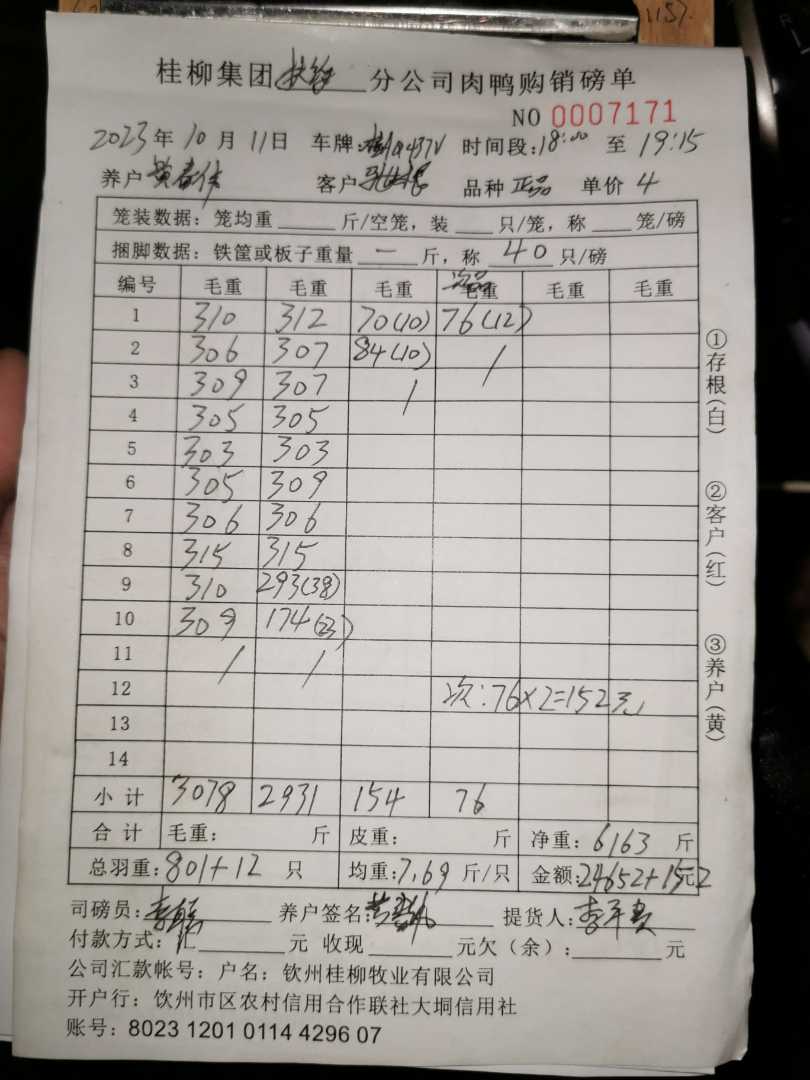 桂柳集团 分公司肉鸭购销磅单
NO 0007171
2023年10月11日 车牌: 时间段:18:00 至 19:15
养户 黄春伟 客户 品种 正品 单价 4
笼装数据：笼均重 斤/空笼，装 只/笼，称 笼/磅
捆脚数据：铁筐或板子重量 — 斤，称 40 只/磅
编号 毛重 毛重 毛重 次品 毛重 毛重 毛重
1 310 312 70(10) 76(12)
2 306 307 84(10) /
3 309 307 /
4 305 305
5 303 303
6 305 309
7 306 306
8 315 315
9 310 293(38)
10 309 174(23)
11 / /
12 次:76×2=152元
13
14
小计 3078 2931 154 76
合计 毛重: 斤 皮重: 斤 净重: 6163 斤
总羽重: 801+12 只 均重: 7.69 斤/只 金额: 24652+152元
司磅员: 养户签名: 提货人:
付款方式: 汇 元 收现 元欠（余）: 元
公司汇款帐号：户名：钦州桂柳牧业有限公司
开户行：饮州市区农村信用合作联社大垌信用社
账号：8023 1201 0114 4296 07
①存根(白)
②客户(红)
③养户(黄)